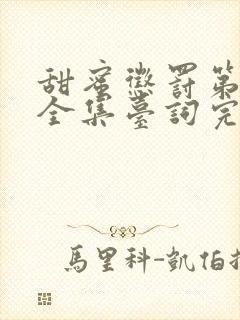 甜蜜懲罰第
全集臺詞完
馬里科-凱伯